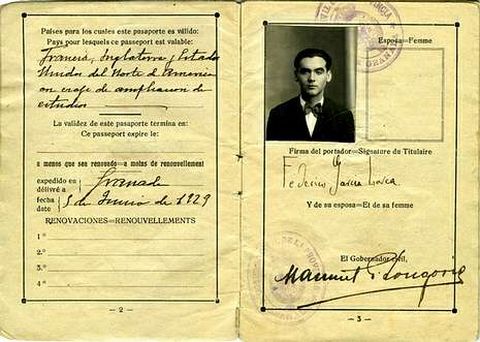 Países para los cuales este pasaporte es válido:
Pays pour lesquels ce passeport est valable:
Francia, Inglaterra y Estados
Unidos del Norte de America
en viaje de ampliacion de
estudios
La validez de este pasaporte termina en:
Ce passeport expire le:
a menos que sea renovado = a moins de renouvellement
expedido en
délivré à
Granada
fecha
date
5 de Junio de 1929
RENOVACIONES=RENOUVELLEMENTS
1º
2.º
3.º
4.º
- 2 -
Esposa=Femme
Firma del portador=Signature du Titulaire
Federico García Lorca
Y de su esposa=Et de sa femme
El Gobernador civil,
- 3 -